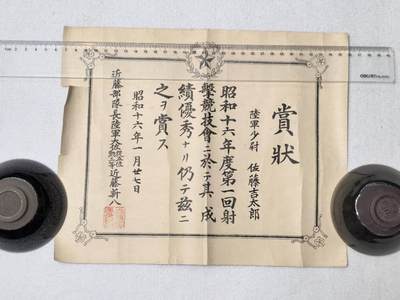 賞狀
陸軍少尉 佐藤吉太郎
昭和十六年度第一回射
擊競技會ニ於テ其ノ成
績優秀ナリ仍テ玆ニ
之ヲ賞ス
昭和十六年一月廿七日
近藤部隊長陸軍大佐從五位勳三等近藤新八